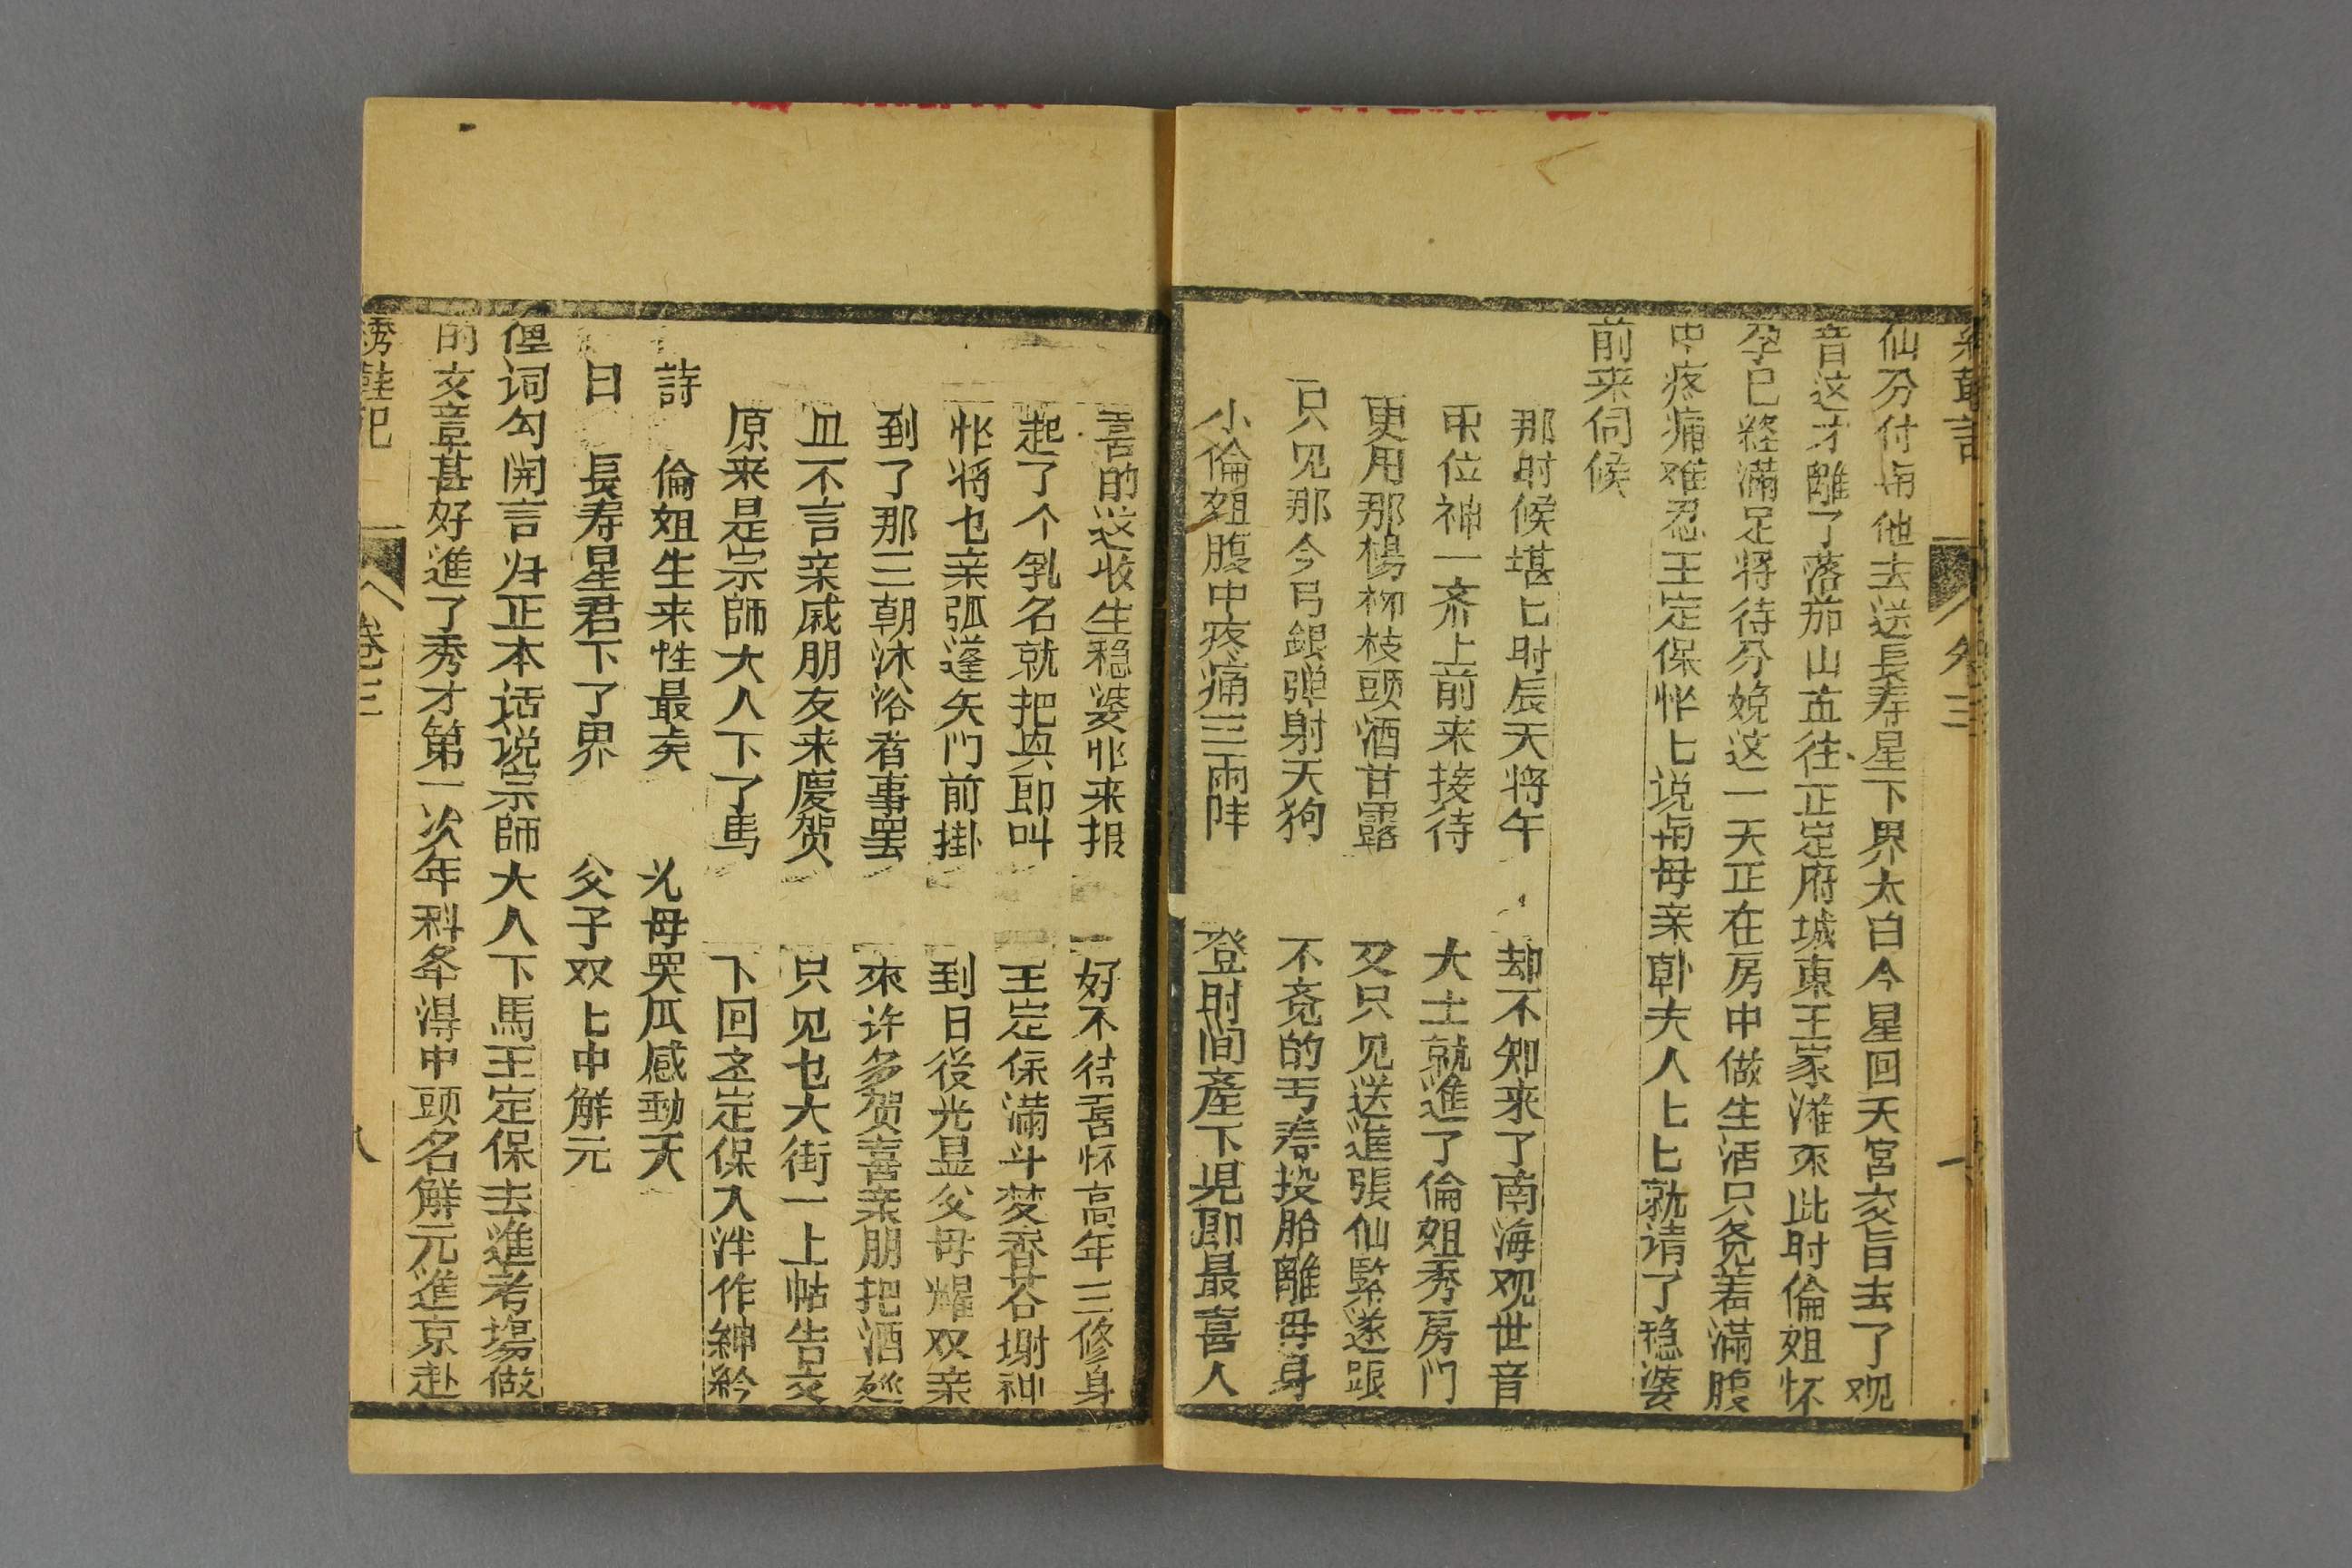 仙分付与他去送長寿星下界太白今星回天宮交旨去了观
音这才離了落茄山直往正定府城東王家滩來此时倫姐怀
孕已経滿足将待分娩这一天正在房中做生活只竟着滿腹
中疼痛难忍王定保忙匕说与母亲卧夫人匕匕就请了穏婆
前来伺候
那时候堪匕时辰天将午 却不知来了南海观世音
甲位神一齐上前来接待 大士就進了倫姐秀房門
更用那楊柳枝頭洒甘露 又只见送進張仙緊遂跟
只见那今弓銀弹射天狗 不竟的丐寿投胎離母身
小倫姐腹中疼痛三两阵 登时间產下児郎最喜人
喜的这收生穏婆忙来报 好不待喜怀高年三修身
起了个乳名就把與郎叫 王定保满斗焚香荅谢神
忙将乜亲弧蓬矢门前掛 到日後光显父母耀双亲
到了那三朝沐浴者事罢 來许多贺喜亲朋把酒
且不言亲戚朋友来慶贺 只见乜大街一上帖告文
原来是宗師大人下了馬 下回这定保入泮作紳衿
詩 倫姐生来性最矣 父母哭瓜感動天
曰 長寿星君下了界 父子双匕中觧元
俚词勾開言归正本话说宗師大人下馬王定保去進考塲做
的文章甚好進了秀才第一次年科举淂中頭名觧元進京赴
綉鞋記 卷三 八